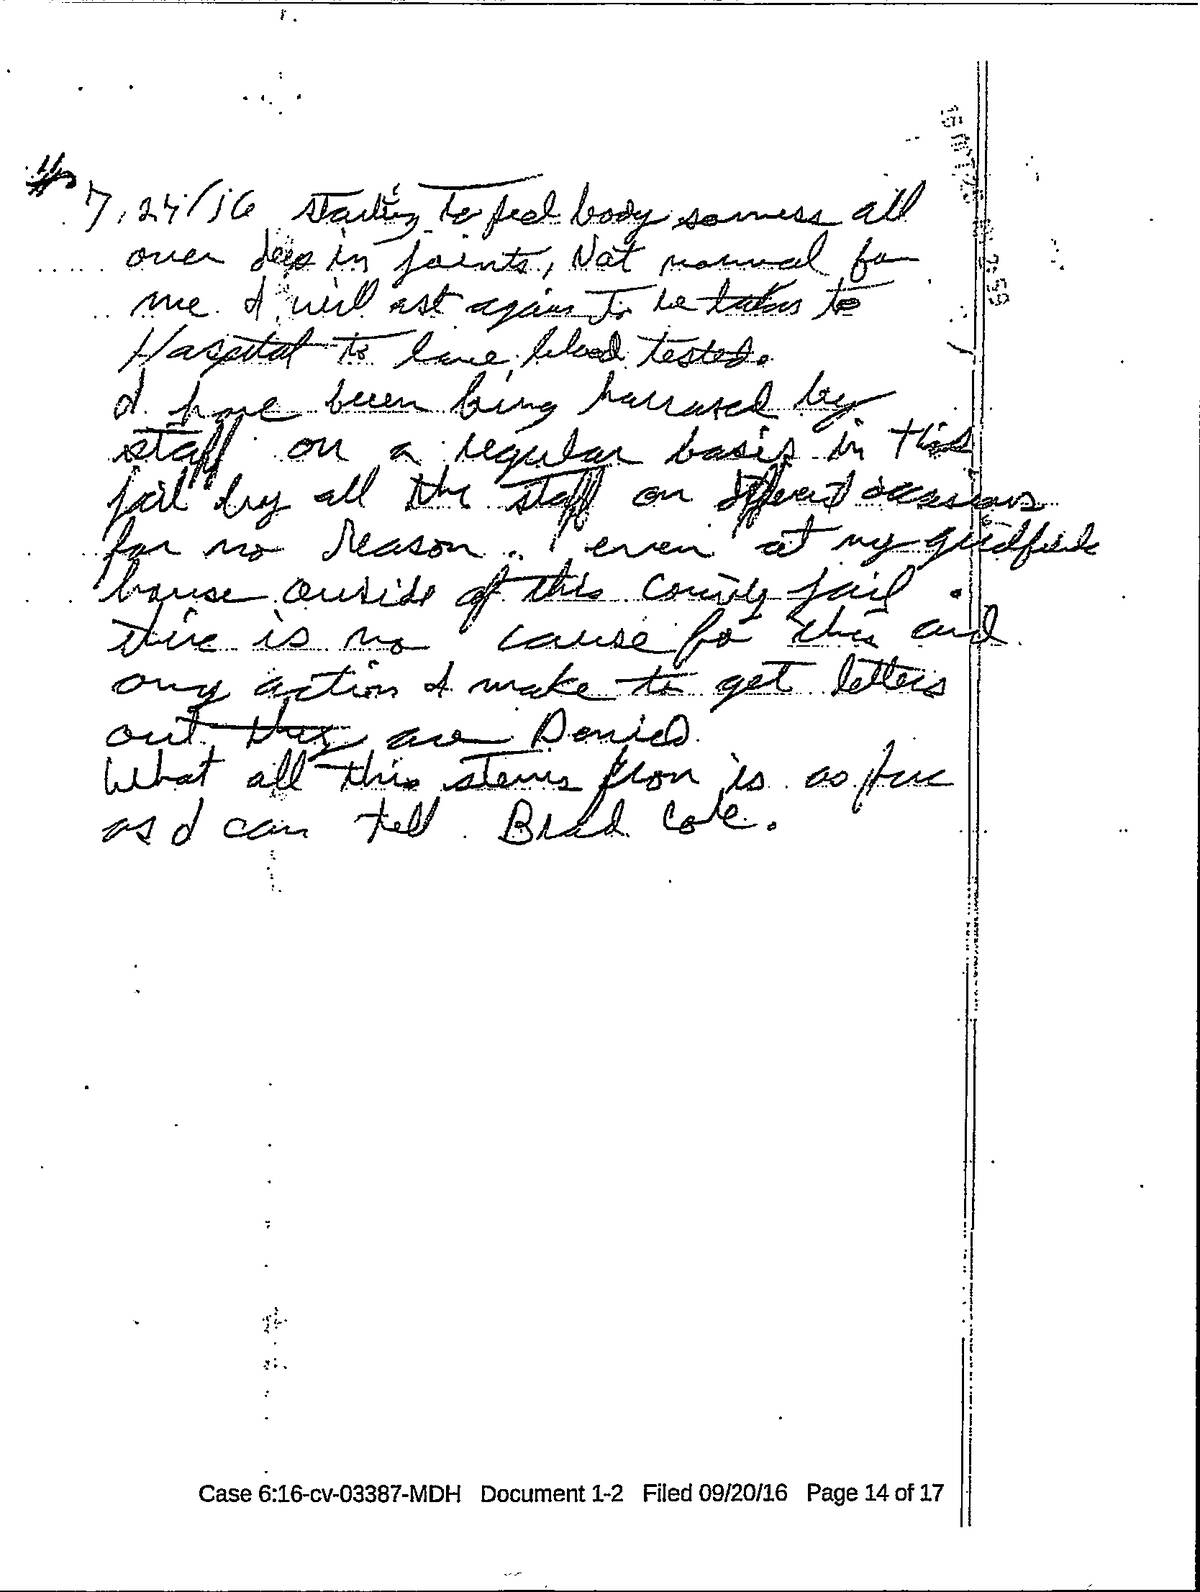 7.24/16 starting to feel body sorness all
over deep in joints, Not normal for
me. I will ask again To be taken to
Hospital to have blood tested.
I have been being harrased by
staff on a regular basis in this
jail by all the staff on different occasions
for no reason.. even at my
house outside of this County jail.
thire is no cause for this and
any action I make to get letters
out they are Denied.
What all this stems from is as fare
as I can tell Brad Cole.
Case 6:16-cv-03387-MDH Document 1-2 Filed 09/20/16 Page 14 of 17